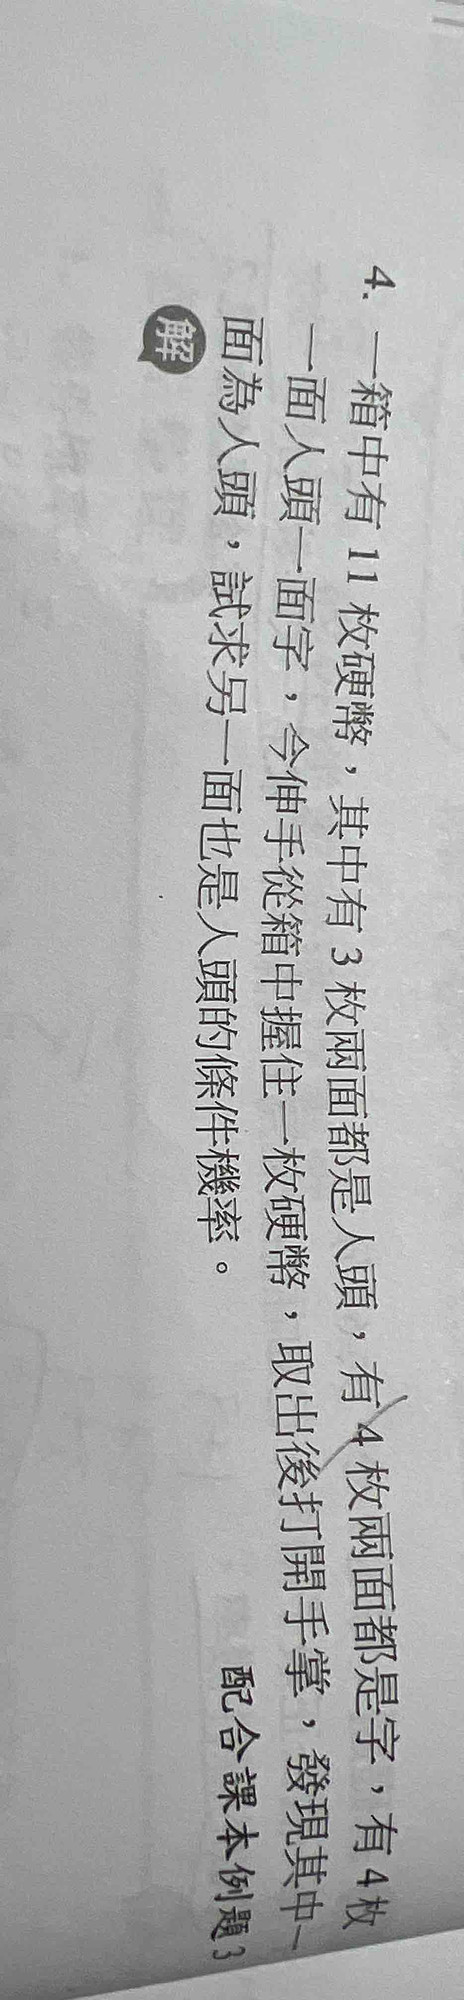 4. 一箱中有 11 枚硬幣，其中有 3 枚兩面都是人頭，有 4 枚兩面都是字，有 4 枚
一面人頭一面字，今伸手從箱中握住一枚硬幣，取出後打開手掌，發現其中一
面為人頭，試求另一面也是人頭的條件機率。
配合課本例題3
解